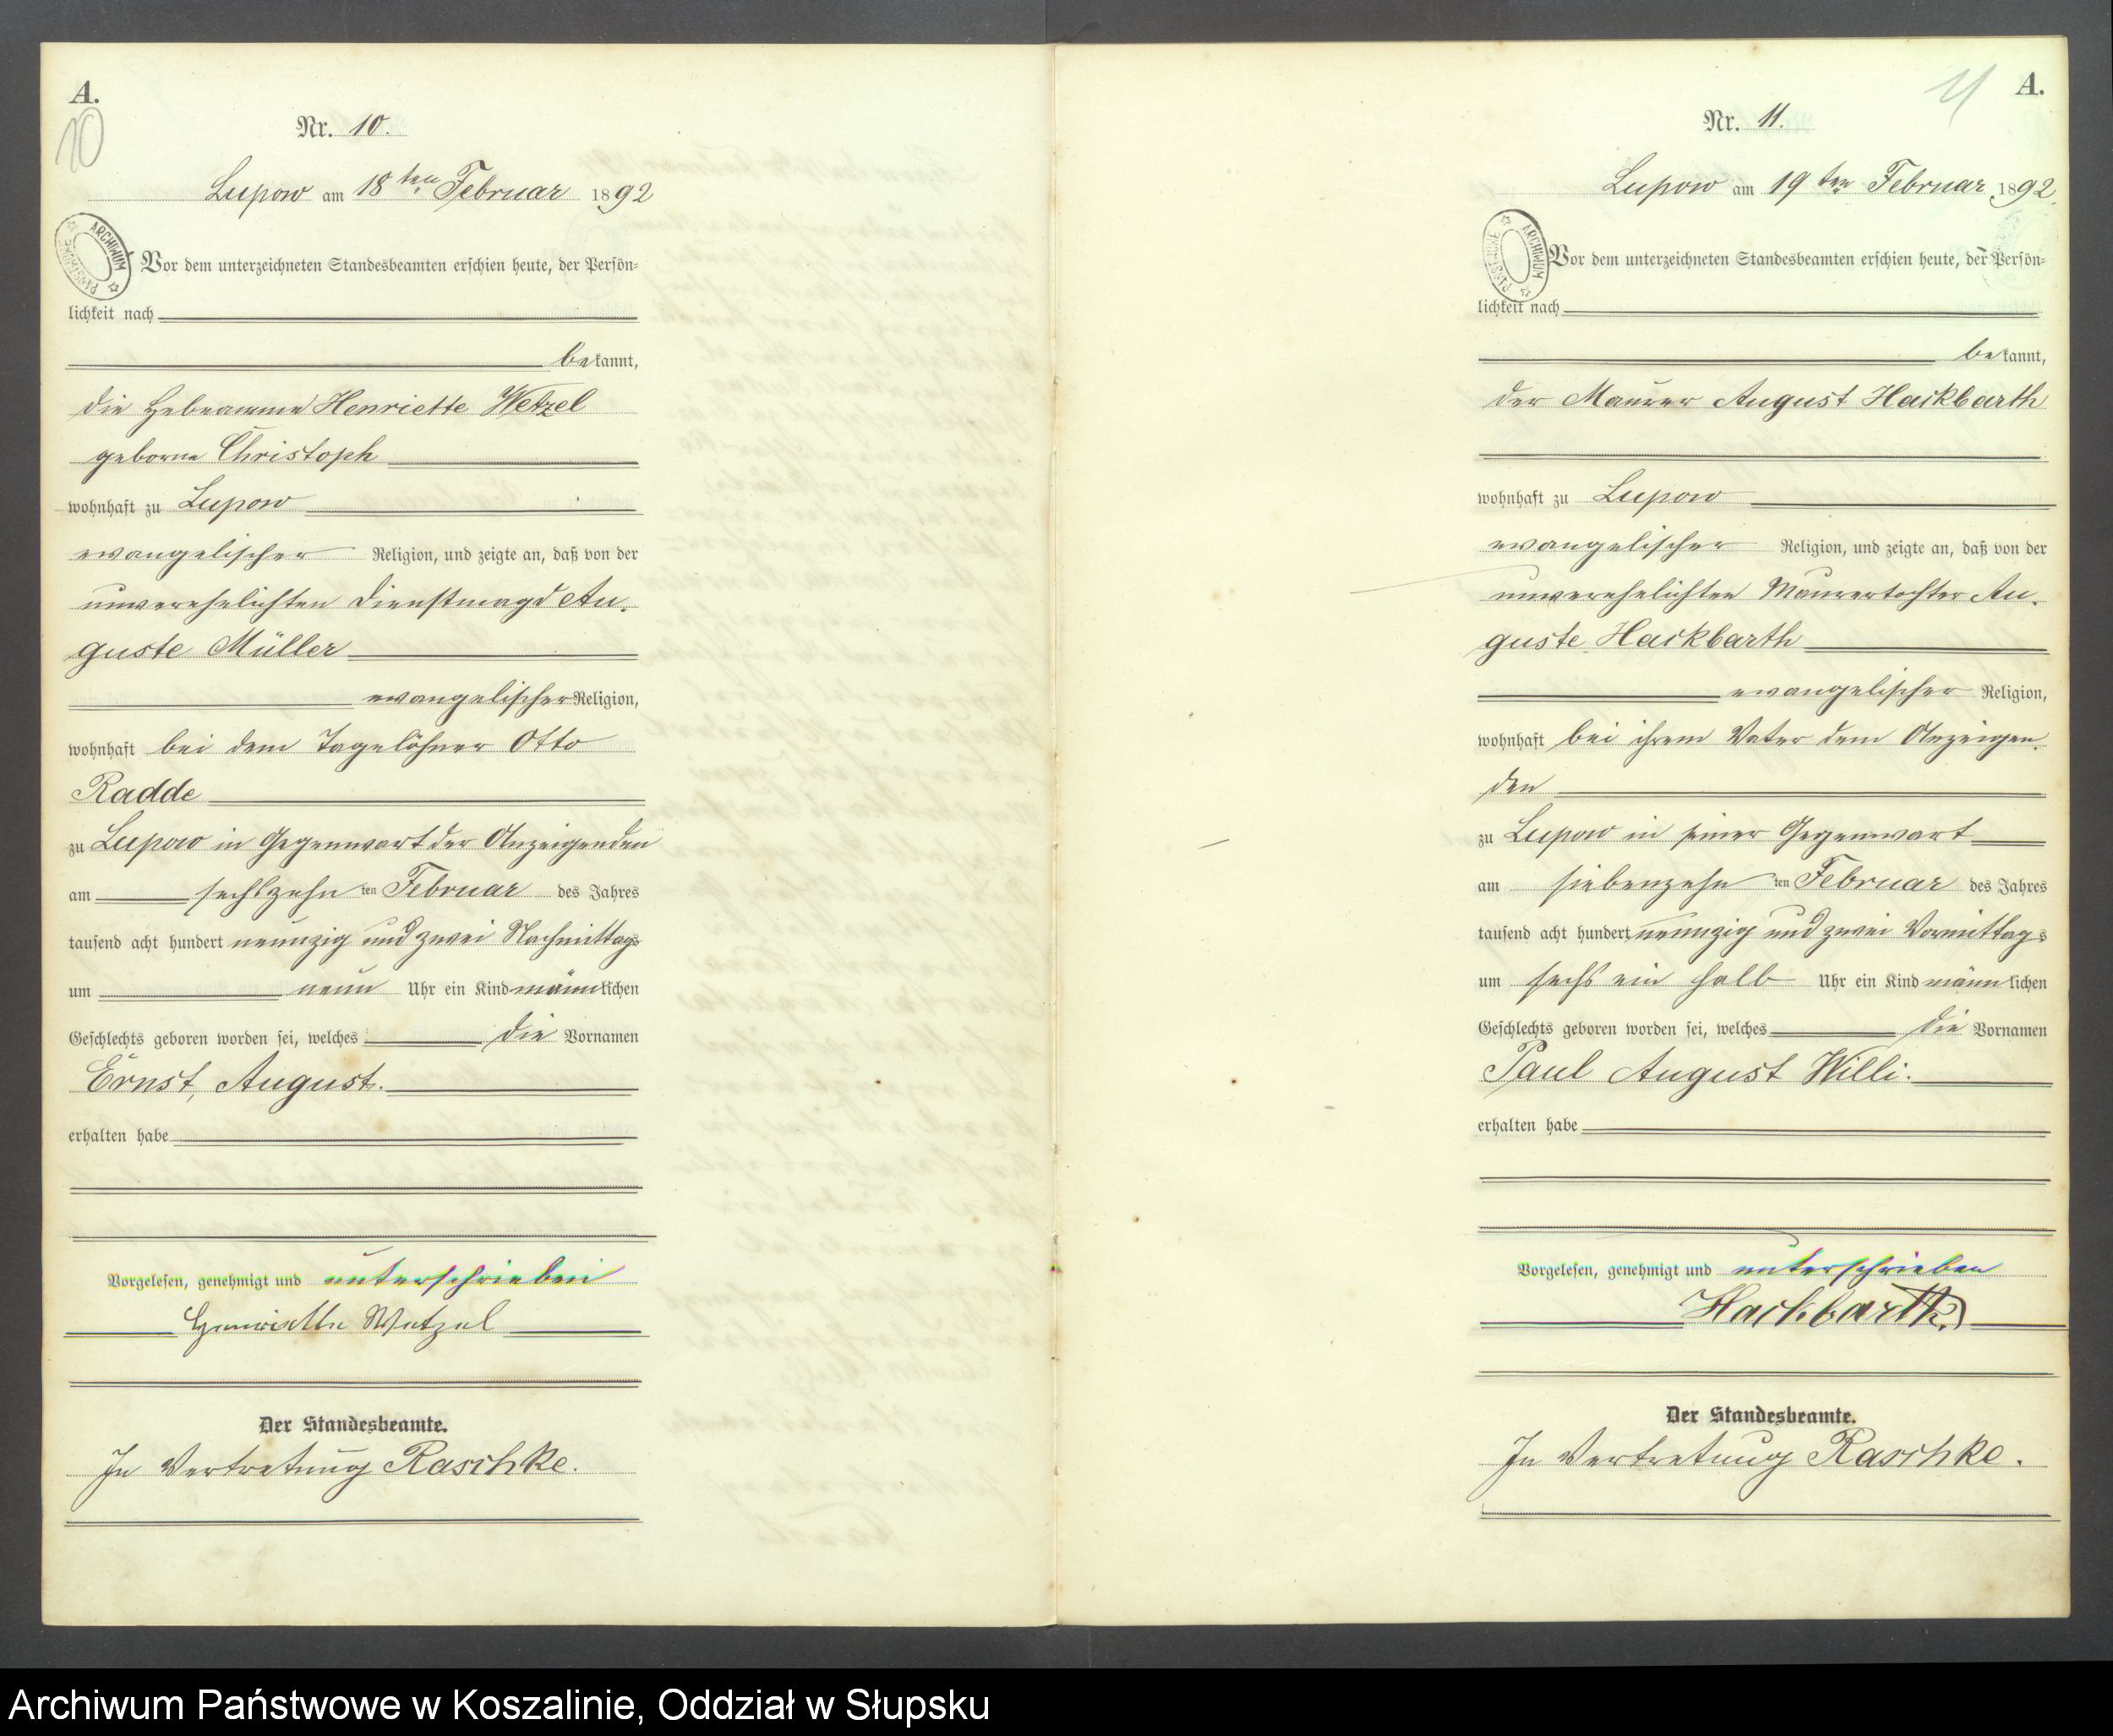 A.
10
Nr. 10.
Lupow am 18ten Februar 1892
ARCHIWUM PAŃSTWOWE
Vor dem unterzeichneten Standesbeamten erschien heute, der Persön=
lichkeit nach
bekannt,
die Hebeamme Henriette Wetzel
geborne Christoph
wohnhaft zu Lupow
evangelischer Religion, und zeigte an, daß von der
unverehelichten Dienstmagd Au-
guste Müller
evangelischer Religion,
wohnhaft bei dem Tagelöhner Otto
Radde
zu Lupow in Gegenwart der Anzeigenden
am sechszehn ten Februar des Jahres
tausend acht hundert neunzig und zwei Nachmittags
um neun Uhr ein Kind männlichen
Geschlechts geboren worden sei, welches die Vornamen
Ernst, August.
erhalten habe
Vorgelesen, genehmigt und unterschrieben
Henriette Wetzel
Der Standesbeamte.
In Vertretung Raschke.
A.
11
Nr. 11.
Lupow am 19ten Februar 1892.
ARCHIWUM PAŃSTWOWE
Vor dem unterzeichneten Standesbeamten erschien heute, der Persön=
lichkeit nach
bekannt,
der Maurer August Hackbarth
wohnhaft zu Lupow
evangelischer Religion, und zeigte an, daß von der
unverehelichten Maurertochter Au-
guste Hackbarth
evangelischer Religion,
wohnhaft bei ihrem Vater dem Anzeigen-
den
zu Lupow in seiner Gegenwart
am siebenzehn ten Februar des Jahres
tausend acht hundert neunzig und zwei Vormittags
um sechs ein halb Uhr ein Kind männlichen
Geschlechts geboren worden sei, welches die Vornamen
Paul August Willi.
erhalten habe
Vorgelesen, genehmigt und unterschrieben
Hackbarth
Der Standesbeamte.
In Vertretung Raschke.
Archiwum Państwowe w Koszalinie, Oddział w Słupsku